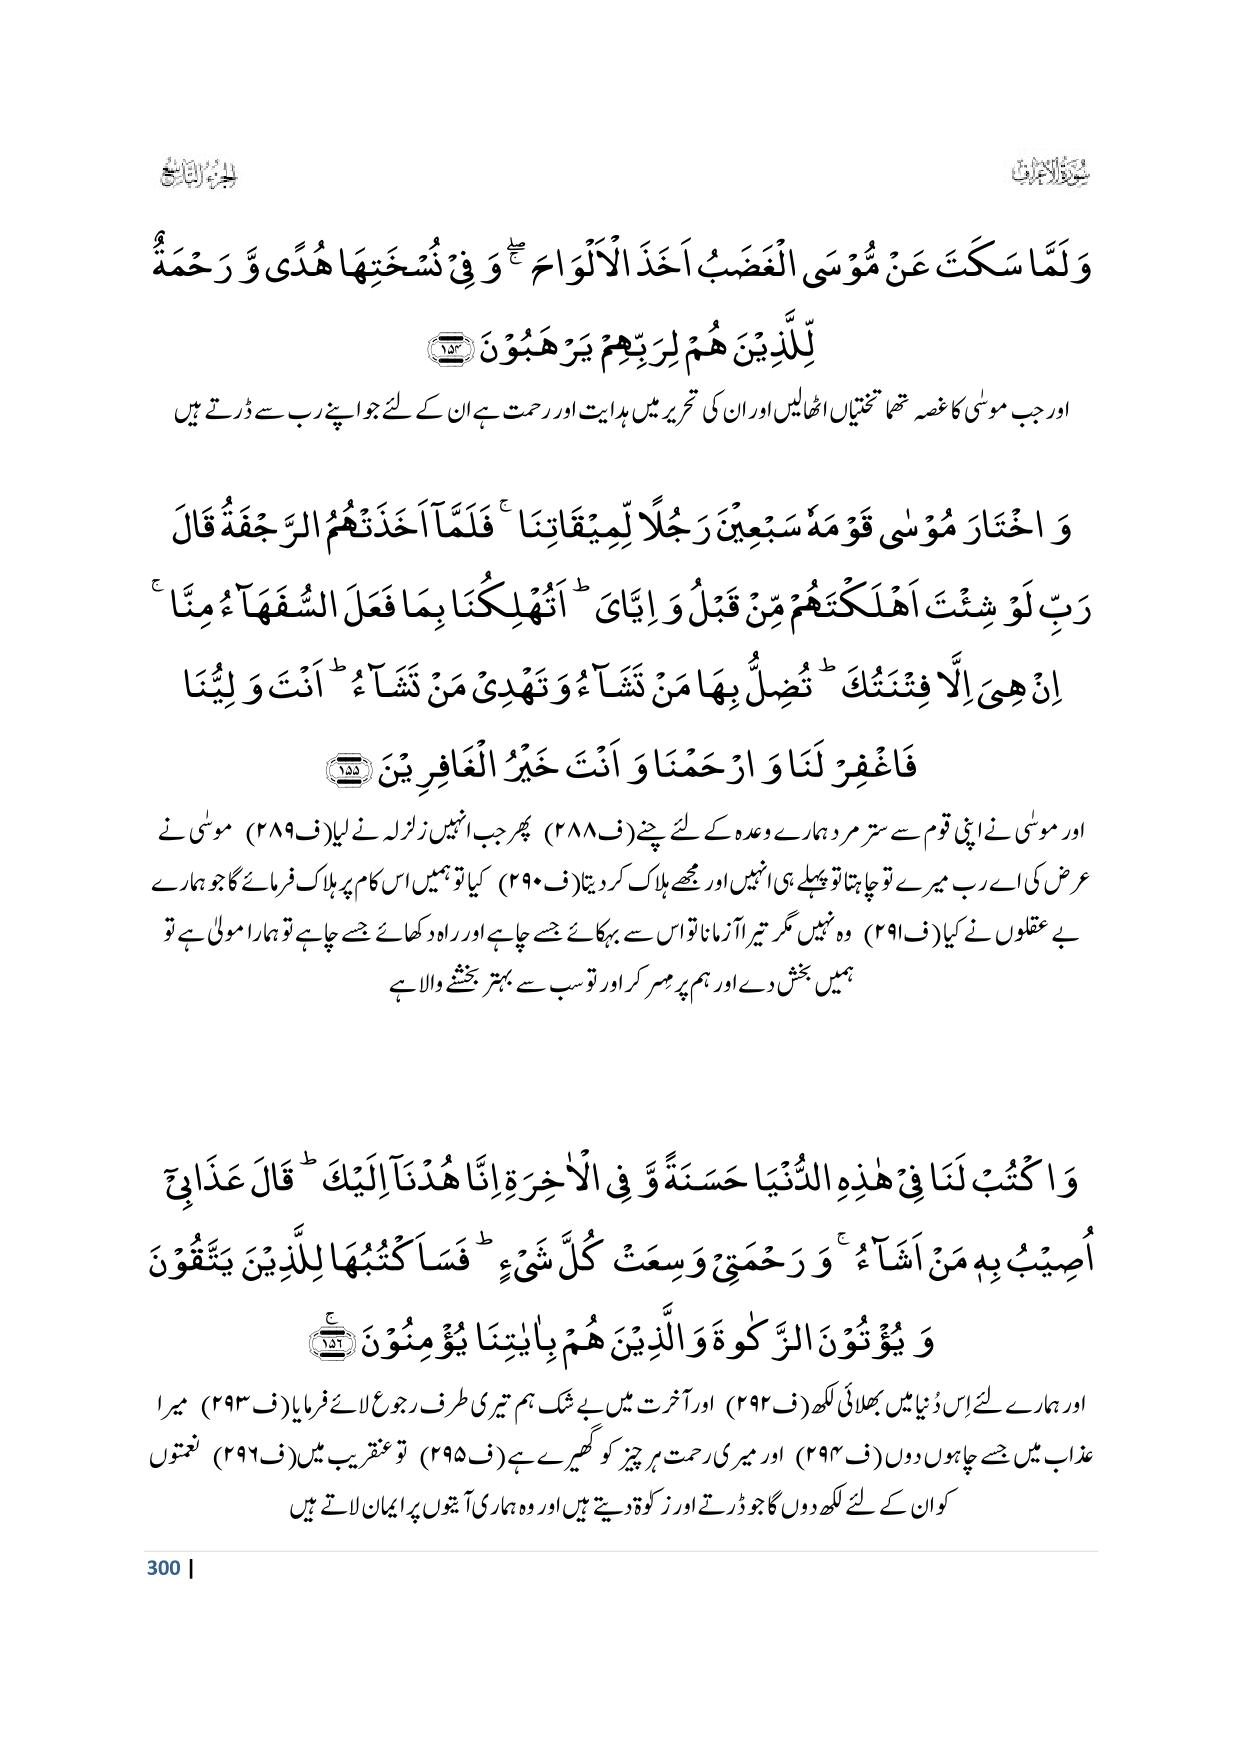 سُوۡرَةُ الۡاَعۡرَاف
الجزء التاسع
وَ لَمَّا سَکَتَ عَنۡ مُّوۡسَی الۡغَضَبُ اَخَذَ الۡاَلۡوَاحَ ۚۖ وَ فِیۡ نُسۡخَتِهَا هُدًی وَّ رَحۡمَةٌ
لِّلَّذِیۡنَ هُمۡ لِرَبِّهِمۡ یَرۡهَبُوۡنَ ﴿۱۵۴﴾
اور جب موسٰی کا غصہ تھما تختیاں اٹھالیں اور ان کی تحریر میں ہدایت اور رحمت ہے ان کے لئے جو اپنے رب سے ڈرتے ہیں
وَ اخۡتَارَ مُوۡسٰی قَوۡمَهٗ سَبۡعِیۡنَ رَجُلًا لِّمِیۡقَاتِنَا ۚ فَلَمَّاۤ اَخَذَتۡهُمُ الرَّجۡفَةُ قَالَ
رَبِّ لَوۡ شِئۡتَ اَهۡلَکۡتَهُمۡ مِّنۡ قَبۡلُ وَ اِیَّایَ ؕ اَتُهۡلِکُنَا بِمَا فَعَلَ السُّفَهَآءُ مِنَّا ۚ
اِنۡ هِیَ اِلَّا فِتۡنَتُکَ ؕ تُضِلُّ بِهَا مَنۡ تَشَآءُ وَ تَهۡدِیۡ مَنۡ تَشَآءُ ؕ اَنۡتَ وَلِیُّنَا
فَاغۡفِرۡ لَنَا وَ ارۡحَمۡنَا وَ اَنۡتَ خَیۡرُ الۡغَافِرِیۡنَ ﴿۱۵۵﴾
اور موسٰی نے اپنی قوم سے ستر مرد ہمارے وعدہ کے لئے چنے (ف۲۸۸) پھر جب انہیں زلزلہ نے لیا (ف۲۸۹) موسٰی نے
عرض کی اے رب میرے تو چاہتا تو پہلے ہی انہیں اور مجھے ہلاک کردیتا (ف۲۹۰) کیا تو ہمیں اس کام پر ہلاک فرمائے گا جو ہمارے
بے عقلوں نے کیا (ف۲۹۱) وہ نہیں مگر تیرا آزمانا تو اس سے بہکائے جسے چاہے اور راہ دکھائے جسے چاہے تو ہمارا مولیٰ ہے تو
ہمیں بخش دے اور ہم پر مِہر کر اور تو سب سے بہتر بخشنے والا ہے
وَ اکۡتُبۡ لَنَا فِیۡ هٰذِهِ الدُّنۡیَا حَسَنَةً وَّ فِی الۡاٰخِرَةِ اِنَّا هُدۡنَاۤ اِلَیۡکَ ؕ قَالَ عَذَابِیۡۤ
اُصِیۡبُ بِهٖ مَنۡ اَشَآءُ ۚ وَ رَحۡمَتِیۡ وَسِعَتۡ کُلَّ شَیۡءٍ ؕ فَسَاَکۡتُبُهَا لِلَّذِیۡنَ یَتَّقُوۡنَ
وَ یُؤۡتُوۡنَ الزَّکٰوةَ وَ الَّذِیۡنَ هُمۡ بِاٰیٰتِنَا یُؤۡمِنُوۡنَ ﴿۱۵۶﴾ۚ
اور ہمارے لئے اِس دُنیا میں بھلائی لکھ (ف۲۹۲) اور آخرت میں بے شک ہم تیری طرف رجوع لائے فرمایا (ف۲۹۳) میرا
عذاب میں جسے چاہوں دوں (ف۲۹۴) اور میری رحمت ہر چیز کو گھیرے ہے (ف۲۹۵) تو عنقریب میں (ف۲۹۶) نعمتوں
کو ان کے لئے لکھ دوں گا جو ڈرتے اور زکوٰۃ دیتے ہیں اور وہ ہماری آیتوں پر ایمان لاتے ہیں
300 |